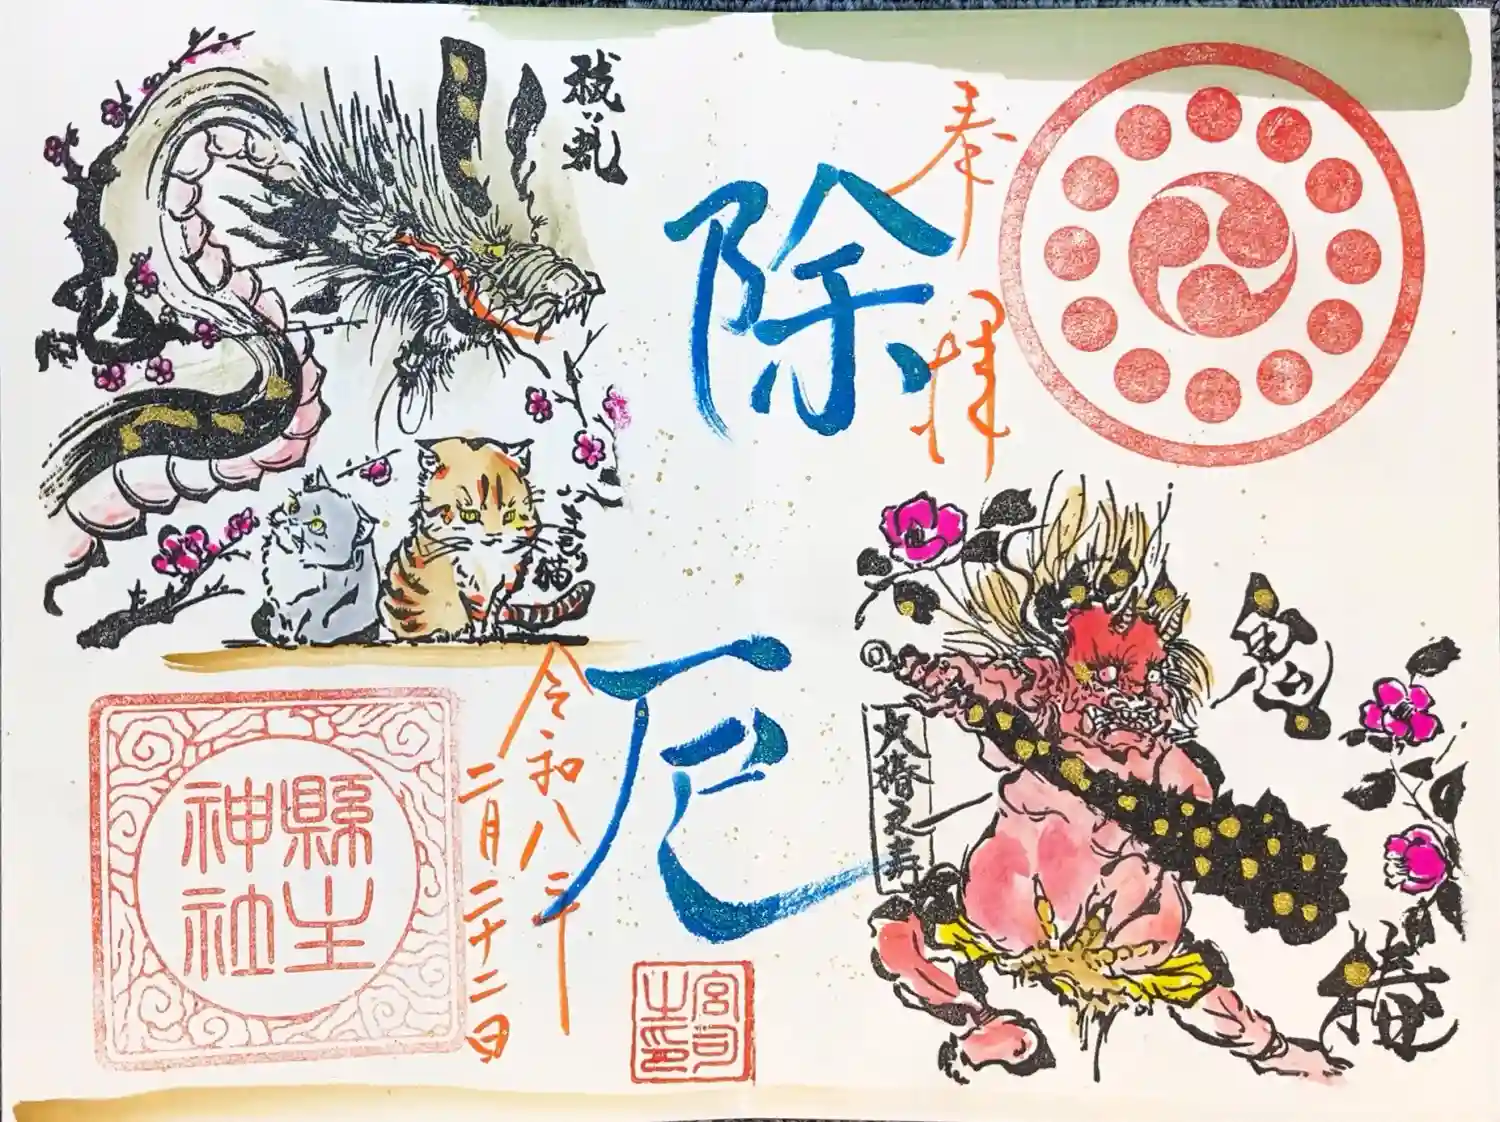 奉拝
除厄
令和八年
二月二十二日
縣主
神社
宮司
之印
鬼
椿
大椿之寿
いまもり猫